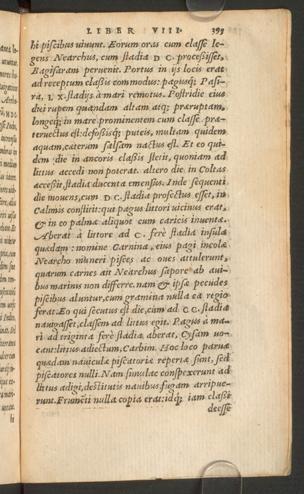 LIBER VIII. 393
hi piscibus uiuunt. Eorum oras cum classe le-
gens Nearchus, cum stadia D C. processisset,
Bagisaram peruenit. Portus in ijs locis erat
ad receptum classis commodus: pagusq; Pasi-
ra, L X. stadijs à mari remotus. Postridie eius
diei rupem quandam altam atq; præruptam,
longeq; in mare prominentem cum classe præ-
teruectus est: defossisq; puteis, multam quidem
aquam, cæterum salsam nactus est. Et eo qui-
dem die in ancoris classis stetit, quoniam ad
littus accedi non poterat. altero die, in Coltas
accessit, stadia ducenta emensus. Inde sequenti
die mouens, cum D C. stadia profectus esset, in
Calimis constitit: qui pagus littori uicinus erat,
& in eo palmæ aliquot cum caricis inuentæ.
Aberat à littore ad C. ferè stadia insula
quædam: nomine Carnina, eius pagi incolæ
Nearcho muneri pisces ac oues attulerunt,
quarum carnes ait Nearchus sapore ab aui-
bus marinis non differre. nam & ipsæ pecudes
piscibus aluntur, cum gramina nulla ea regio
ferat. Eo qui secutus est die, cum ad C C. stadia
nauigasset, classem ad littus egit. Pagus à ma-
ri ad triginta ferè stadia aberat, Cysam uo-
cant: littus adiectum, Carbim. Hoc loco paruæ
quædam nauiculæ piscatoriæ repertæ sunt, sed
piscatores nulli. Nam simulac conspexerunt ad
littus adigi, destitutis nauibus fugam arripue-
runt. Frumenti nulla copia erat: idq; iam classi
deesse